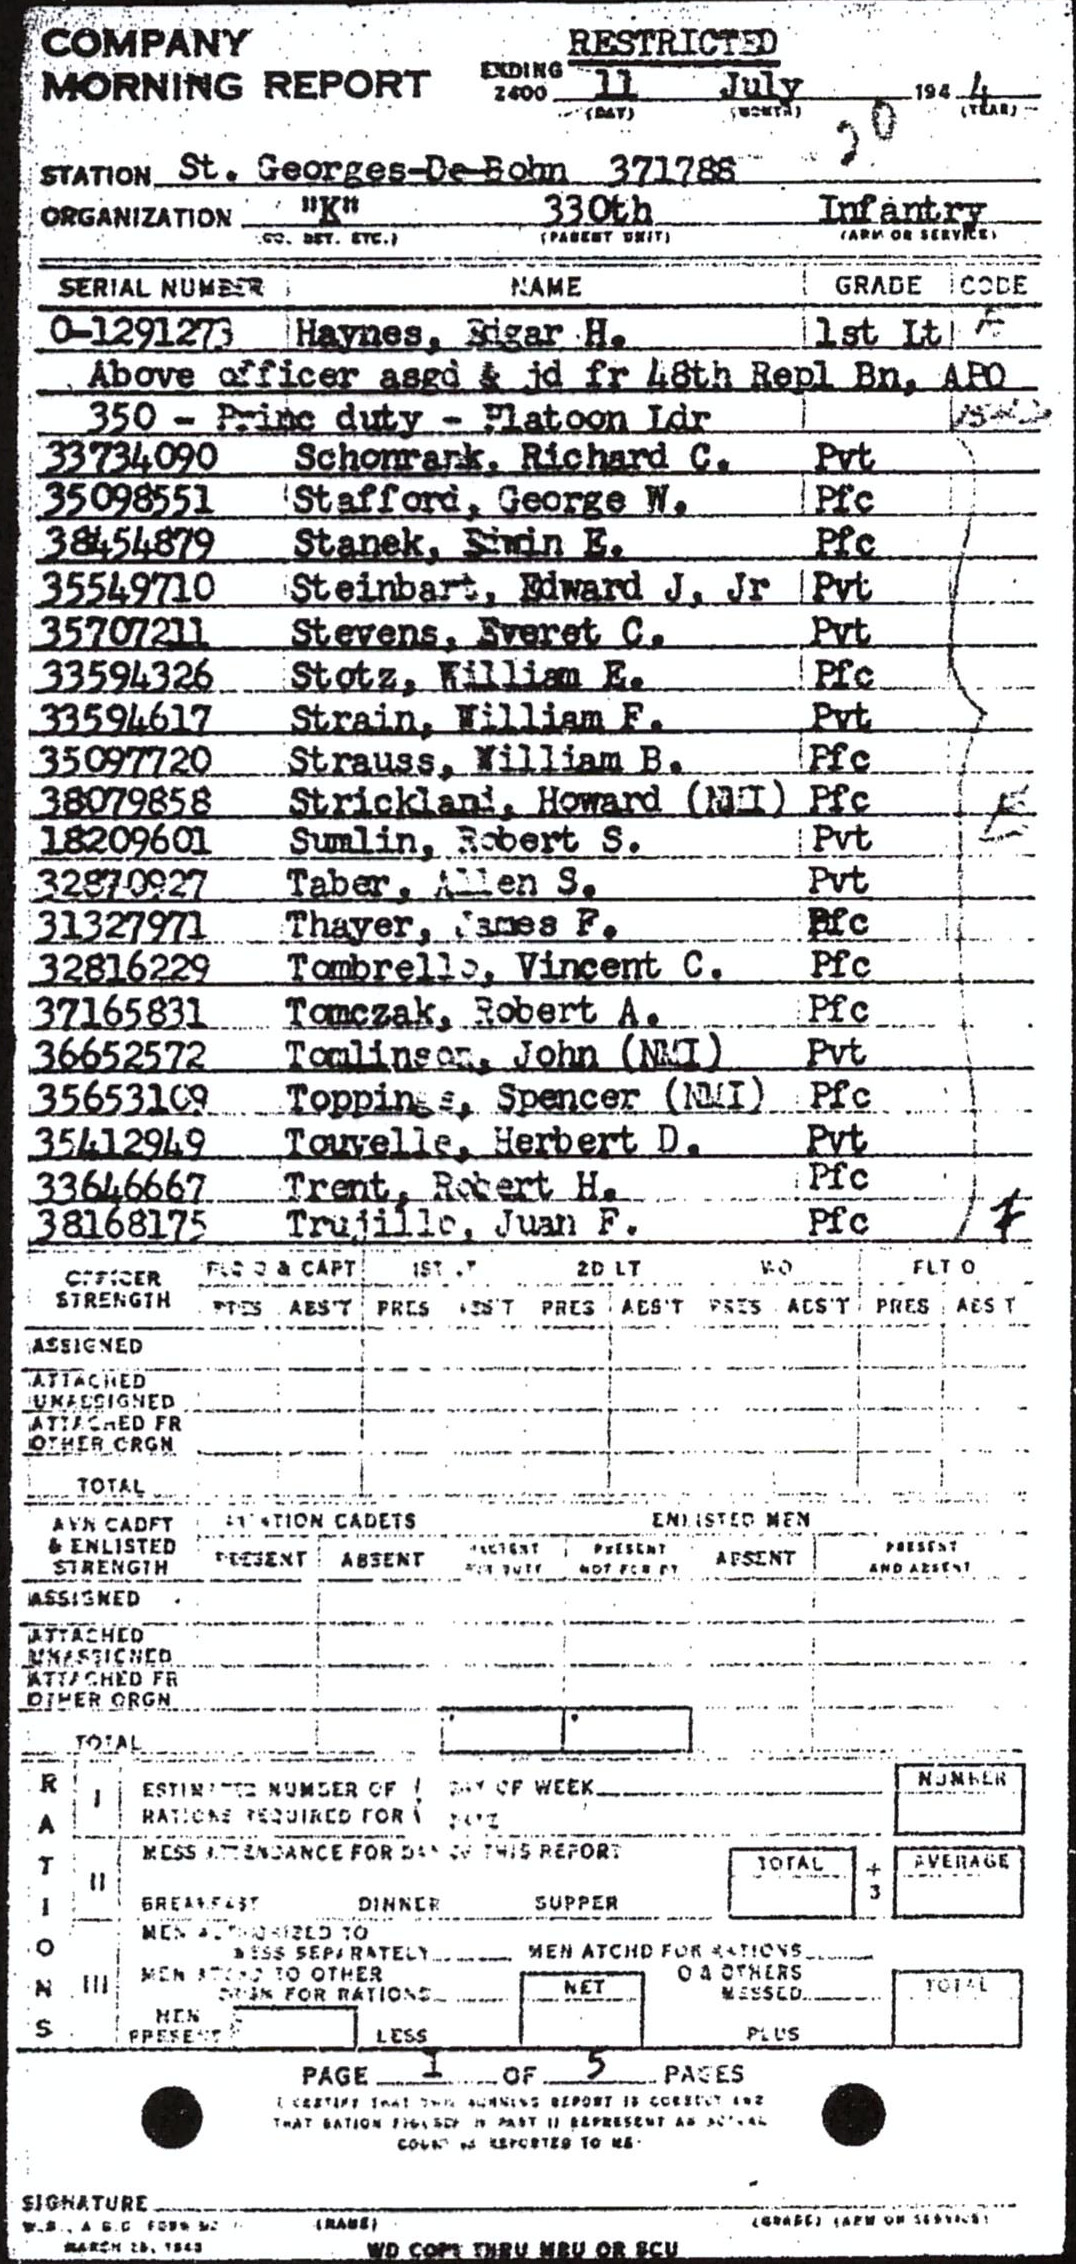 COMPANY
MORNING REPORT
RESTRICTED
ENDING
2400 11 July 194 4
(DAY) (MONTH) (YEAR)
20
STATION St. Georges-De-Bohn 371788
ORGANIZATION "K" 330th Infantry
(CO. DET. ETC.) (PARENT UNIT) (ARM OR SERVICE)
SERIAL NUMBER NAME GRADE CODE
O-1291273 Haynes, Edgar H. 1st Lt
Above officer asgd & jd fr 48th Repl Bn, APO
350 - Princ duty - Platoon Ldr
33734090 Schonrank, Richard C. Pvt
35098551 Stafford, George W. Pfc
38454879 Stanek, E. Pfc
35549710 Steinbart, Edward J, Jr Pvt
35707211 Stevens, Everet C. Pvt
33594326 Stotz, William E. Pfc
33594617 Strain, William F. Pvt
35097720 Strauss, William B. Pfc
38079858 Strickland, Howard (NMI) Pfc
E
18209601 Sumlin, Robert S. Pvt
32870927 Taber, Allen S. Pvt
31327971 Thayer, James F. Pfc
32816229 Tombrello, Vincent C. Pfc
37165831 Tomczak, Robert A. Pfc
36652572 Tomlinson, John (NMI) Pvt
35653109 Toppings, Spencer (NMI) Pfc
35412949 Touvelle, Herbert D. Pvt
33646667 Trent, Robert H. Pfc
38168175 Trujillo, Juan F. Pfc
OFFICER FLD O & CAPT 1ST LT 2D LT WO FLT O
STRENGTH PRES ABS'T PRES ABS'T PRES ABS'T PRES ABS'T PRES ABS T
ASSIGNED
ATTACHED
UNASSIGNED
ATTACHED FR
OTHER ORGN
TOTAL
AVN CADET AVIATION CADETS ENLISTED MEN
& ENLISTED
STRENGTH PRESENT ABSENT PRESENT FOR DUTY PRESENT NOT FOR DY ABSENT PRESENT AND ABSENT
ASSIGNED
ATTACHED
UNASSIGNED
ATTACHED FR
OTHER ORGN
TOTAL
RATIONS
I ESTIMATED NUMBER OF DAY OF WEEK NUMBER
RATIONS REQUIRED FOR DATE
II MESS ATTENDANCE FOR DAY OF THIS REPORT TOTAL ÷ 3 AVERAGE
BREAKFAST DINNER SUPPER
III MEN AUTHORIZED TO
MESS SEPARATELY MEN ATCHD FOR RATIONS
MEN ATCHD TO OTHER O & OTHERS
ORGN FOR RATIONS NET MESSED TOTAL
MEN
PRESENT LESS PLUS
PAGE 1 OF 5 PAGES
I CERTIFY THAT THIS MORNING REPORT IS CORRECT AND
THAT RATION FIGURE IN PART II REPRESENT AN ACTUAL
COUNT AS REPORTED TO ME
SIGNATURE
(NAME) (GRADE) (ARM OR SERVICE)
W.D., A.G.O. FORM NO.
MARCH 25, 1943
WD COPY THRU MRU OR SCU